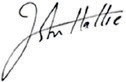 John Hattie